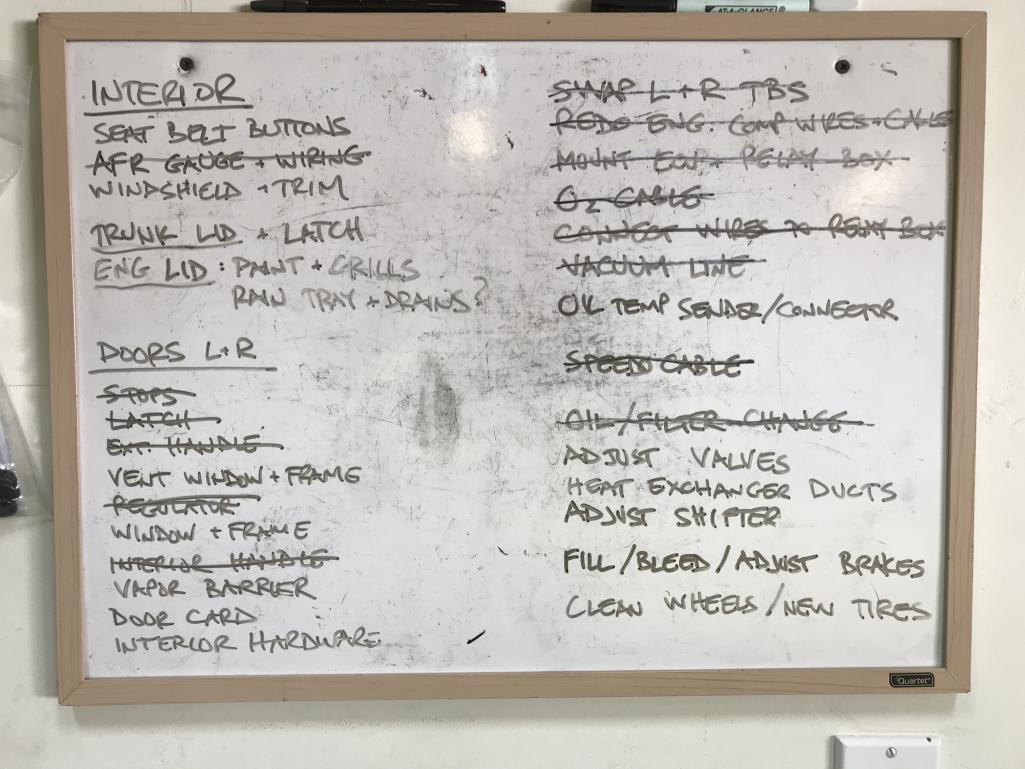 AT-A-GLANCE
INTERIOR
SEAT BELT BUTTONS
AFR GAUGE + WIRING
WINDSHIELD + TRIM
TRUNK LID + LATCH
ENG LID : PAINT + GRILLS
RAIN TRAY + DRAINS?
DOORS L+R
STOPS
LATCH
EXT. HANDLE
VENT WINDOW + FRAME
REGULATOR
WINDOW + FRAME
INTERIOR HANDLE
VAPOR BARRIER
DOOR CARD
INTERIOR HARDWARE
SWAP L+R TBS
REDO ENG. COMP WIRES + CABLE
MOUNT ECU + RELAY BOX
O2 CABLE
CONNECT WIRES TO RELAY BOX
VACUUM LINE
OIL TEMP SENDER/CONNECTOR
SPEEDO CABLE
OIL/FILTER CHANGE
ADJUST VALVES
HEAT EXCHANGER DUCTS
ADJUST SHIFTER
FILL/BLEED/ADJUST BRAKES
CLEAN WHEELS/NEW TIRES
Quartet